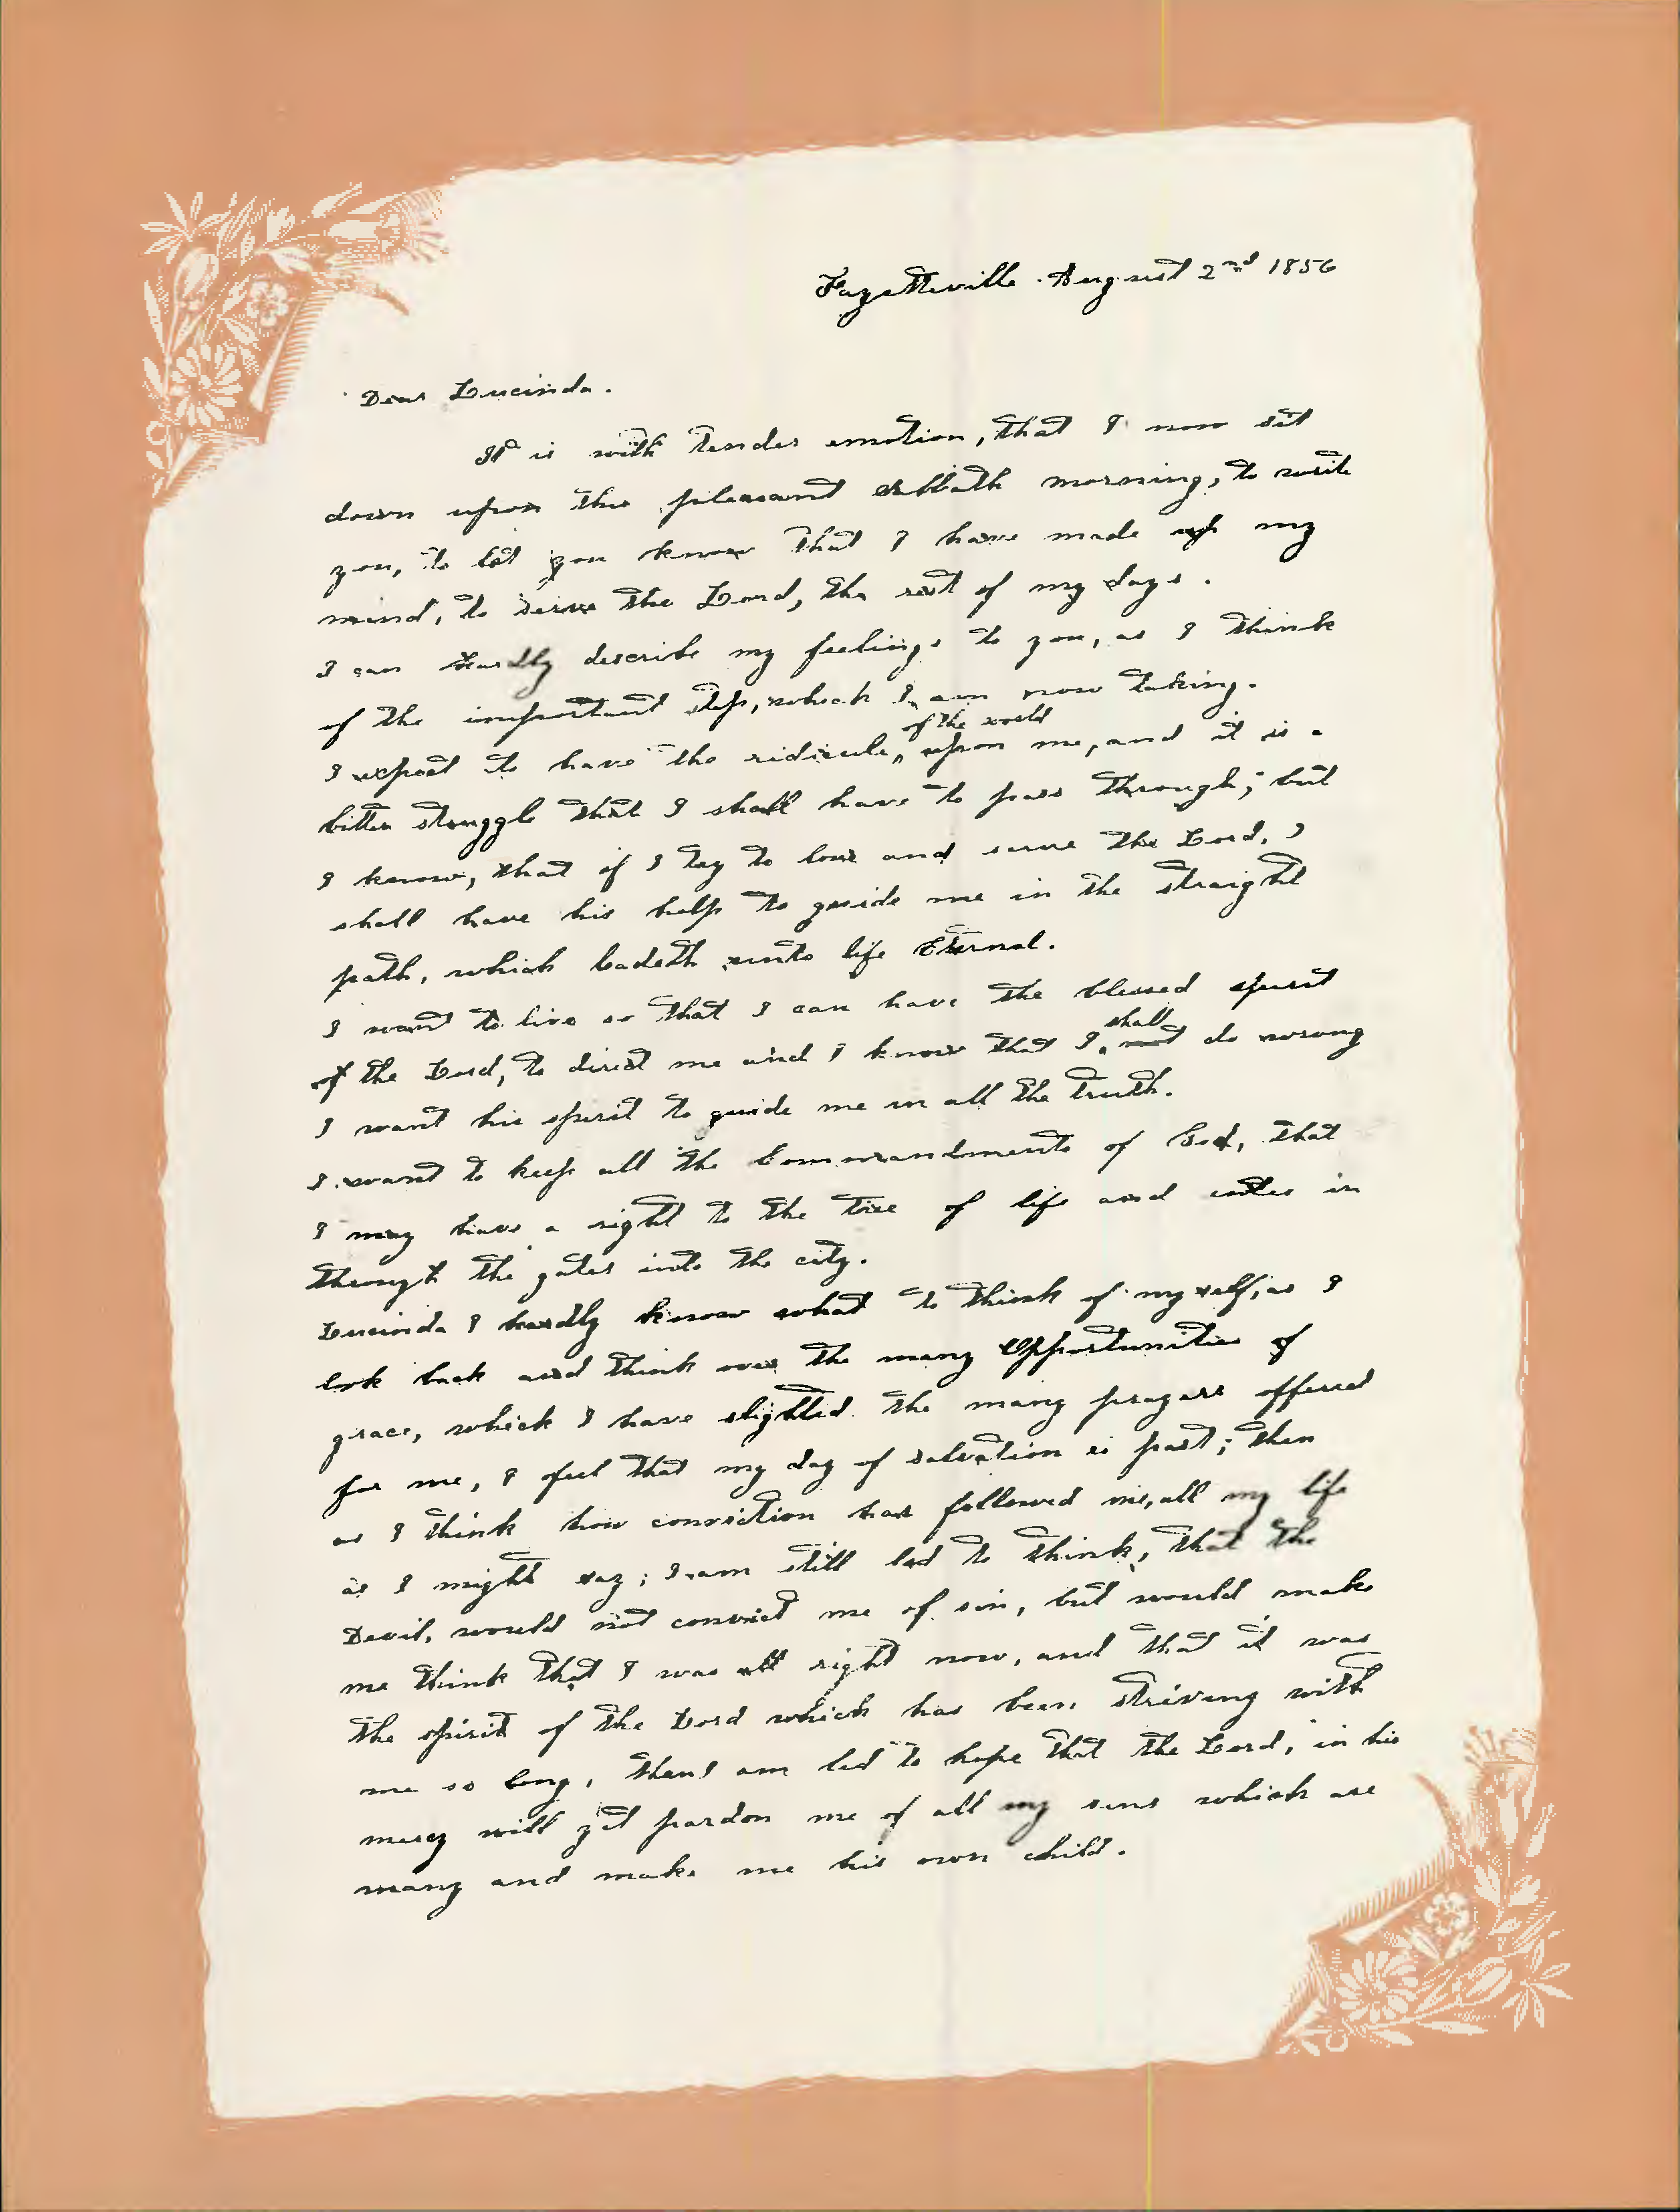 Fayetteville. August 2nd 1856
Dear Lucinda.
It is with tender emotion, that I now sit
down upon this pleasant sabbath morning, to write
you, to let you know that I have made up my
mind, to serve the Lord, the rest of my days.
I can hardly describe my feelings to you, as I think
of the important step, which I am now taking.
of the world
I expect to have the ridicule, upon me, and it is a
bitter struggle that I shall have to pass through; but
I know, that if I try to love and serve the Lord, I
shall have his help to guide me in the straight
path, which leadeth unto life Eternal.
I want to live so that I can have the blessed spirit
shall
of the Lord, to direct me and I know that I not do wrong
I want his spirit to guide me in all the truth.
I want to keep all the Commandments of God, that
I may have a right to the tree of life and enter in
through the gates into the city.
Lucinda I hardly know what to think of myself, as I
look back and think over the many Opportunities of
grace, which I have slighted. the many prayers offered
for me, I feel that my day of salvation is past; then
as I think how conviction has followed me, all my life
as I might say; I am still led to think, that the
Devil, would not convict me of sin, but would make
me think that I was all right now, and that it was
the spirit of the Lord which has been striving with
me so long, then I am led to hope that the Lord, in his
mercy will yet pardon me of all my sins which are
many and make me his own child.